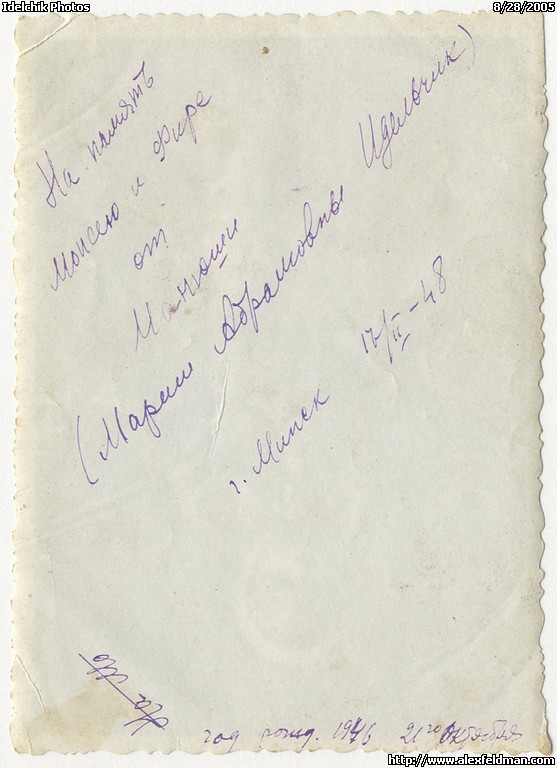 Idelchik Photos 8/28/2005
На память
Моисею и Фире
от
Манюши
(Марии Абрамовны Идельчик)
г. Минск 17/II-48
На
год рожд. 1946 21го октября
http://www.alexfeldman.com